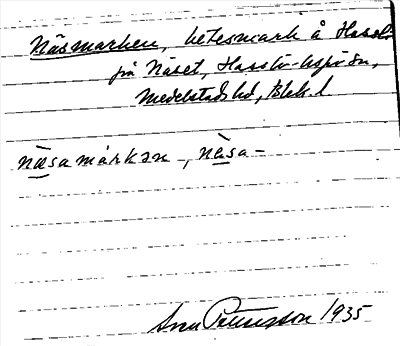 Näsmarken, betesmark å Hassl-
på Näset, Hasslö-Aspö sn,
Medelstads hd, Blek. l
näsamárkən, nàsa-
Sven Pettersson 1935